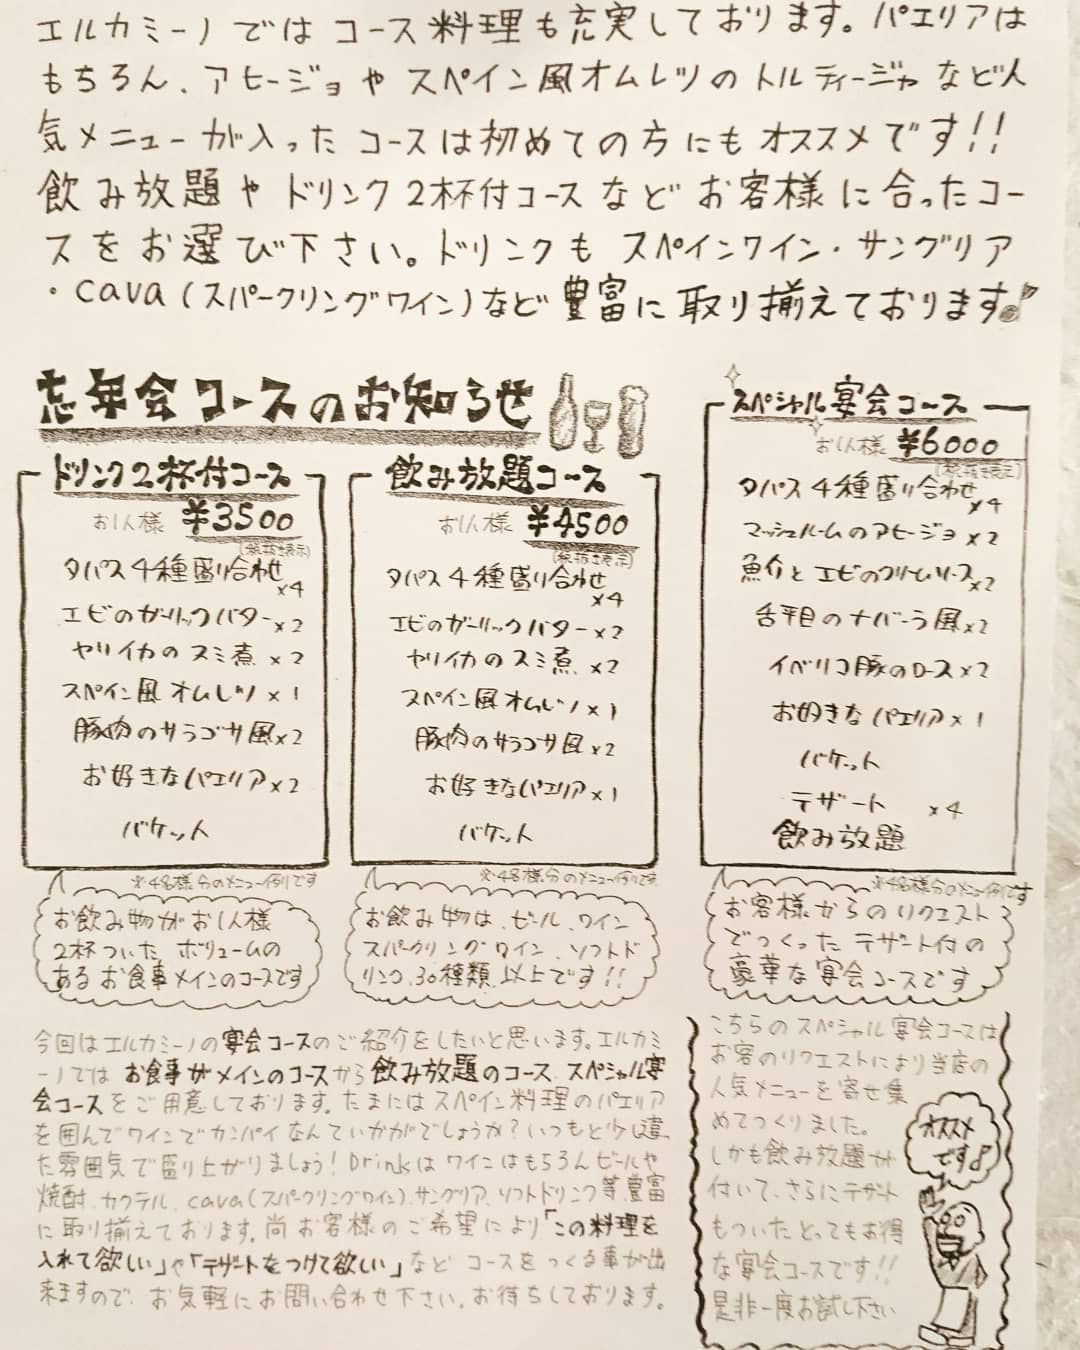 エルカミーノではコース料理も充実しております。パエリアは
もちろん、アヒージョやスペイン風オムレツのトルティージャなど人
気メニューが入ったコースは初めての方にもオススメです!!
飲み放題やドリンク2杯付コースなどお客様に合ったコー
スをお選び下さい。ドリンクもスペインワイン・サングリア
・cava(スパークリングワイン)など豊富に取り揃えております♪
忘年会コースのお知らせ
ドリンク2杯付コース
お1人様 ¥3500
(税抜き表示)
タパス4種盛り合わせ×4
エビのガーリックバター×2
ヤリイカのスミ煮×2
スペイン風オムレツ×1
豚肉のサラゴサ風×2
お好きなパエリア×2
バケット
※4名様分のメニュー例です
お飲み物がお1人様
2杯ついたボリュームの
あるお食事メインのコースです
飲み放題コース
お1人様 ¥4500
(税抜き表示)
タパス4種盛り合わせ×4
エビのガーリックバター×2
ヤリイカのスミ煮×2
スペイン風オムレツ×1
豚肉のサラゴサ風×2
お好きなパエリア×1
バケット
※4名様分のメニュー例です
お飲み物は、ビール、ワイン
スパークリングワイン、ソフトド
リンク、30種類以上です!!
スペシャル宴会コース
お1人様 ¥6000
(税抜き表示)
タパス4種盛り合わせ×4
マッシュルームのアヒージョ×2
魚介とエビのクリームソース×2
舌平目のナバーラ風×2
イベリコ豚のロース×2
お好きなパエリア×1
バケット
デザート ×4
飲み放題
※4名様分のメニュー例です
お客様からのリクエスト
でつくったデザート付の
豪華な宴会コースです
今回はエルカミーノの宴会コースのご紹介をしたいと思います。エルカミ
ーノではお食事がメインのコースから飲み放題のコース、スペシャル宴
会コースをご用意しております。たまにはスペイン料理のパエリア
を囲んでワインでカンパイなんていかがでしょうか?いつもと少し違っ
た雰囲気で盛り上がりましょう!Drinkはワインはもちろんビールや
焼酎、カクテル、cava(スパークリングワイン)、サングリア、ソフトドリンク等豊富
に取り揃えております。尚お客様のご希望により「この料理を
入れて欲しい」や「デザートをつけて欲しい」などコースをつくる事が出
来ますので、お気軽にお問い合わせ下さい。お待ちしております。
こちらのスペシャル宴会コースは
お客のリクエストにより当店の
人気メニューを寄せ集
めてつくりました。
しかも飲み放題が
付いて、さらにデザート
もついたとってもお得
な宴会コースです!!
是非一度お試し下さい
オススメ
です♪